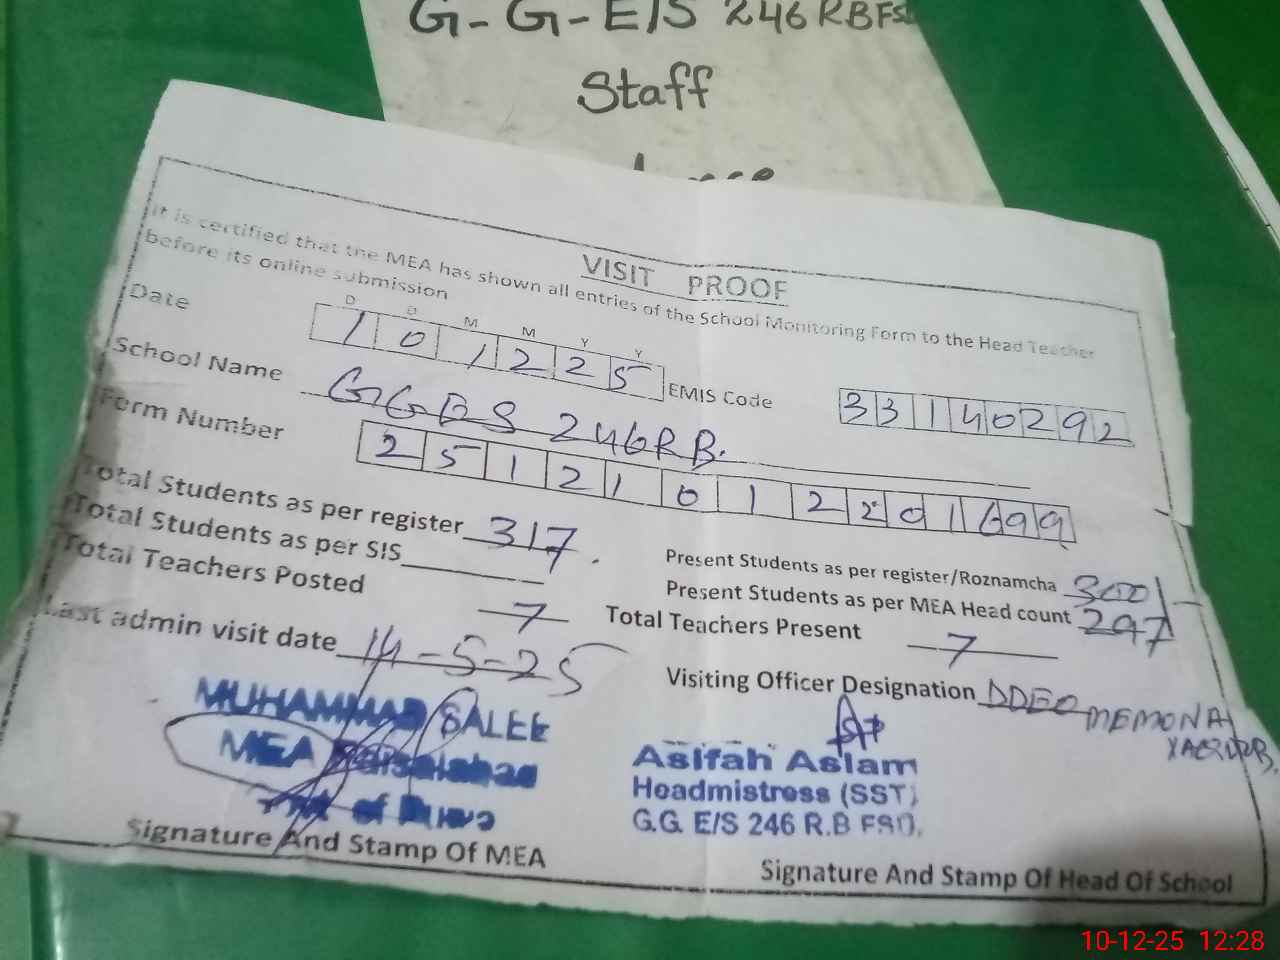 G-G-E/S 246 RB FSD
Staff
VISIT PROOF
It is certified that the MEA has shown all entries of the School Monitoring Form to the Head Teacher
before its online submission
D D M M Y Y
Date 1 0 1 2 2 5 EMIS Code 3 3 1 4 0 2 9 2
School Name GGES 246RB.
Form Number 2 5 1 2 1 0 1 2 2 0 1 6 9 9
Total Students as per register 317.
Present Students as per register/Roznamcha 300
Total Students as per SIS
Present Students as per MEA Head count 297
Total Teachers Posted 7 Total Teachers Present 7
Last admin visit date 14-5-25
Visiting Officer Designation DDEO MEMONA
MUHAMMAD SALEE
MEA Faisalabad
Asifah Aslam
Headmistress (SST)
G.G. E/S 246 R.B FSD.
Signature And Stamp Of MEA
Signature And Stamp Of Head Of School
10-12-25 12:28